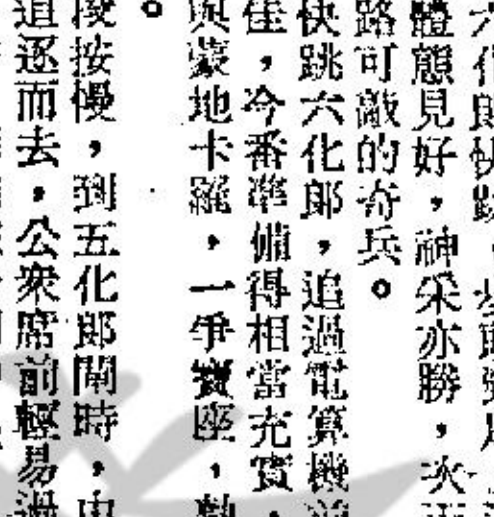 體態見好，神采亦勝，次
路可敵的奇兵。
快跳六化郎，追過電算機
佳，今番準備得相當充實，
與蒙地卡羅，一爭寶座，
。
後按慢，到五化郎閘時，由
追逐而去，公衆席前輕易過